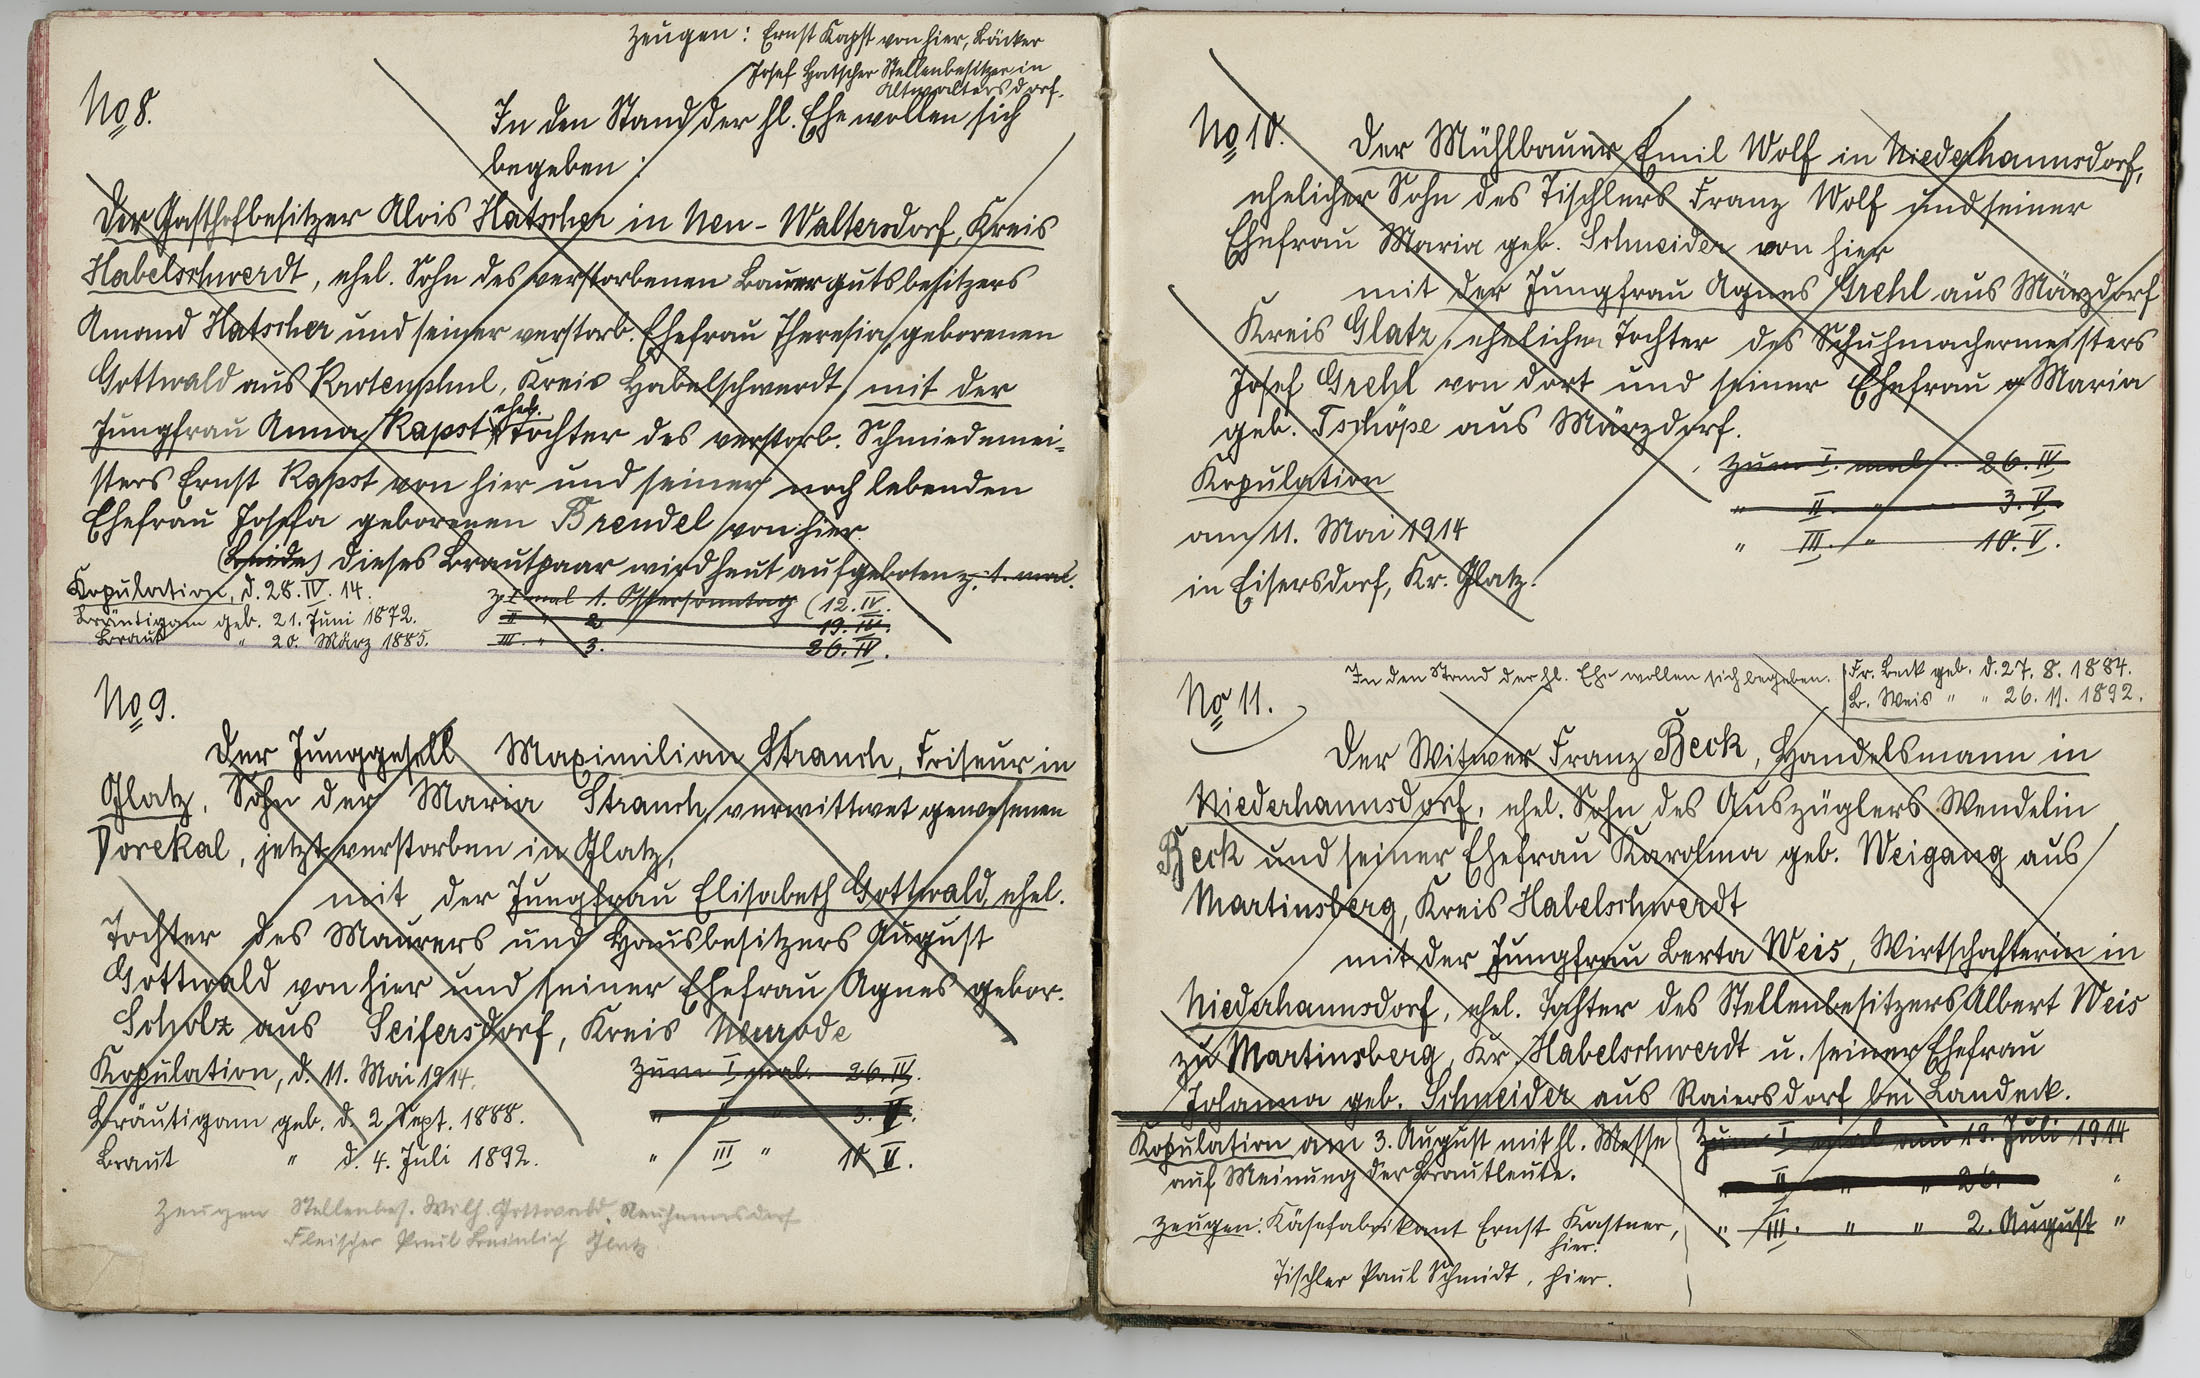 Zeugen: Ernst Kapst von hier, Bäcker
Josef Hatscher Stellenbesitzer in
Altwaltersdorf.
No 8.
In den Stand der hl. Ehe wollen sich
begeben:
Der Gasthofbesitzer Alois Hatscher in Neu-Waltersdorf, Kreis
Habelschwerdt, ehel. Sohn des verstorbenen Bauergutsbesitzers
Amand Hatscher und seiner verstorb. Ehefrau Theresia geborenen
Gottwald aus Krotenphul, Kreis Habelschwerdt, mit der
Jungfrau Anna Kapst, ehel. Tochter des verstorb. Schmiedemei-
sters Ernst Kapst von hier und seiner noch lebenden
Ehefrau Josefa geborenen Brendel von hier.
(Beide) Dieses Brautpaar wird heut aufgeboten z. 1. mal.
Kopulation, d. 28. IV. 14.
z. I mal 1. Ostersonntag (12. IV.
Bräutigam geb. 21. Juni 1872.
II " 2. 19. IV.
Braut " 20. März 1885.
III. " 3. 26. IV.
No 9.
Der Junggesell Maximilian Strauch, Friseur in
Glatz, Sohn der Maria Strauch, verwittwet gewesenen
Vorekal, jetzt verstorben in Glatz,
mit der Jungfrau Elisabeth Gottwald, ehel.
Tochter des Maurers und Hausbesitzers August
Gottwald von hier und seiner Ehefrau Agnes gebor.
Scholz aus Seifersdorf, Kreis Neurode
Kopulation, d. 11. Mai 1914.
Zum I. mal. 26. IV.
Bräutigam geb. d. 2. Sept. 1888.
" II " 3. V.
Braut " d. 4. Juli 1892.
" III " 10 V.
Zeugen Stellenbes. Wilh. Gottwald, Neuhannsdorf
Fleischer Paul Glatz.
No 10.
Der Mühlbauer Emil Wolf in Niederhannsdorf,
ehelicher Sohn des Tischlers Franz Wolf und seiner
Ehefrau Maria geb. Schneider von hier
mit der Jungfrau Agnes Grehl aus Märzdorf
Kreis Glatz, ehelichen Tochter des Schuhmachermeisters
Josef Grehl von dort und seiner Ehefrau Maria
geb. Tschöpe aus Märzdorf.
Kopulation
Zum I. mal 26. IV
" II. " 3. V.
am 11. Mai 1914
" III. " 10. V.
in Eisersdorf, Kr. Glatz.
In den Stand der hl. Ehe wollen sich begeben.
Fr. Beck geb. d. 27. 8. 1884.
B. Weis " " 26. 11. 1892.
No 11.
Der Witwer Franz Beck, Handelsmann in
Niederhannsdorf, ehel. Sohn des Auszüglers Wendelin
Beck und seiner Ehefrau Karolina geb. Weigang aus
Martinsberg, Kreis Habelschwerdt
mit der Jungfrau Berta Weis, Wirtschafterin in
Niederhannsdorf, ehel. Tochter des Stellenbesitzers Albert Weis
zu Martinsberg, Kr. Habelschwerdt u. seiner Ehefrau
Johanna geb. Schneider aus Raiersdorf bei Landeck.
Kopulation am 3. August mit hl. Messe
auf Meinung der Brautleute.
Zum I. mal am 19. Juli 1914
" II " " 26. "
Zeugen: Käsefabrikant Ernst Kastner,
hier.
" III. " " 2. August "
Tischler Paul Schmidt, hier.